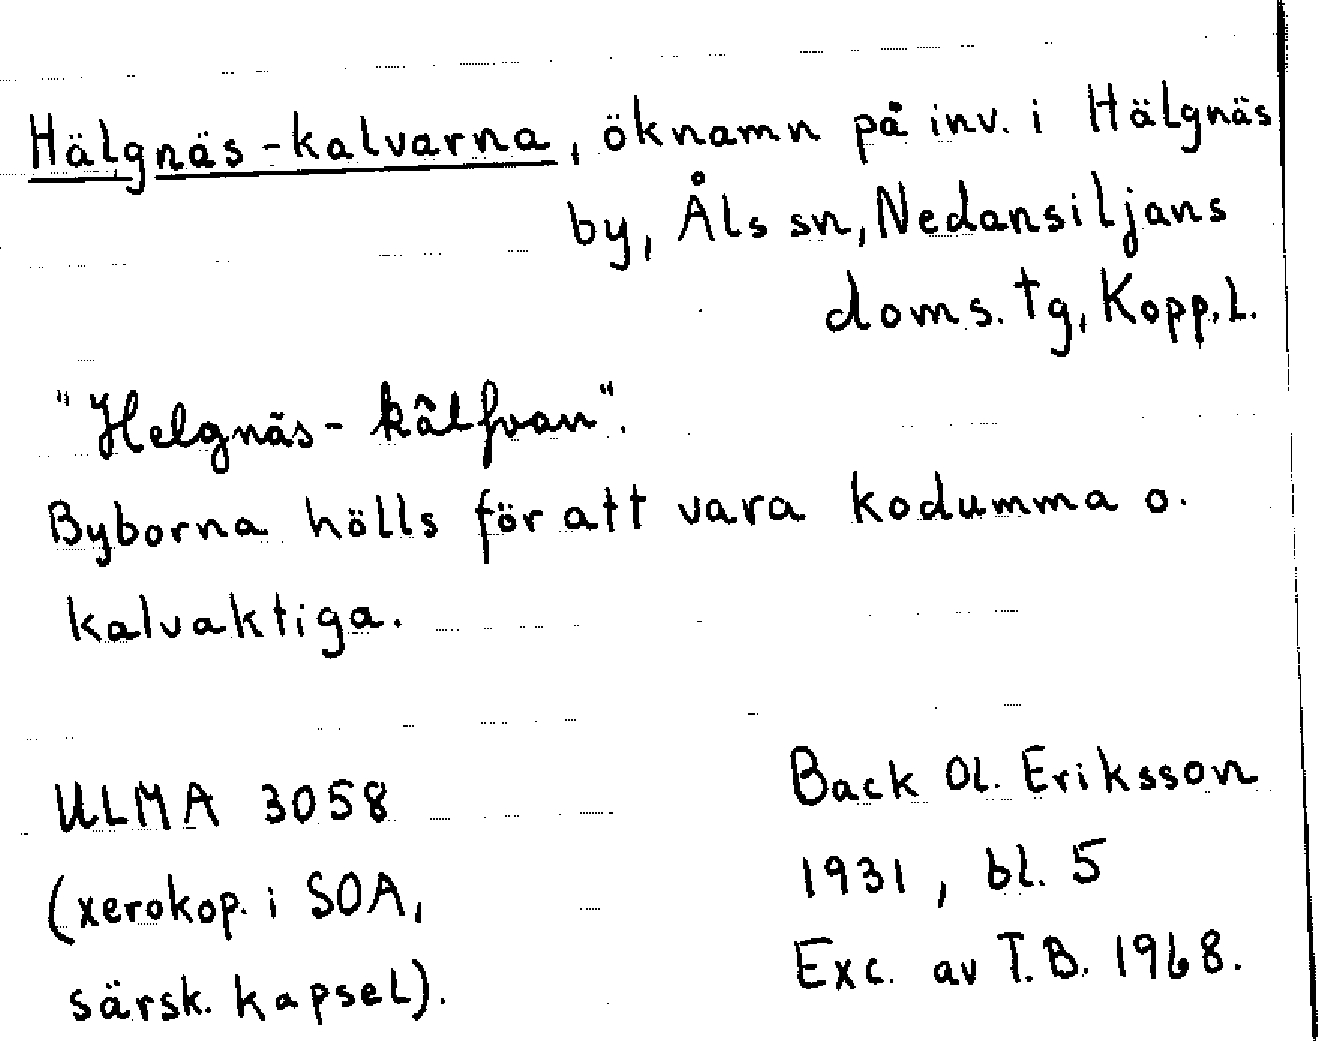 Hälgnäs-kalvarna, öknamn på inv. i Hälgnäs
by, Åls sn, Nedansiljans
doms. tg, Kopp. l.
"Helgnäs-kâlfvan".
Byborna hölls för att vara kodumma o.
kalvaktiga.
ULMA 3058
(xerokop. i SOA,
särsk. kapsel).
Back Ol. Eriksson
1931, bl. 5
Exc. av T.B. 1968.